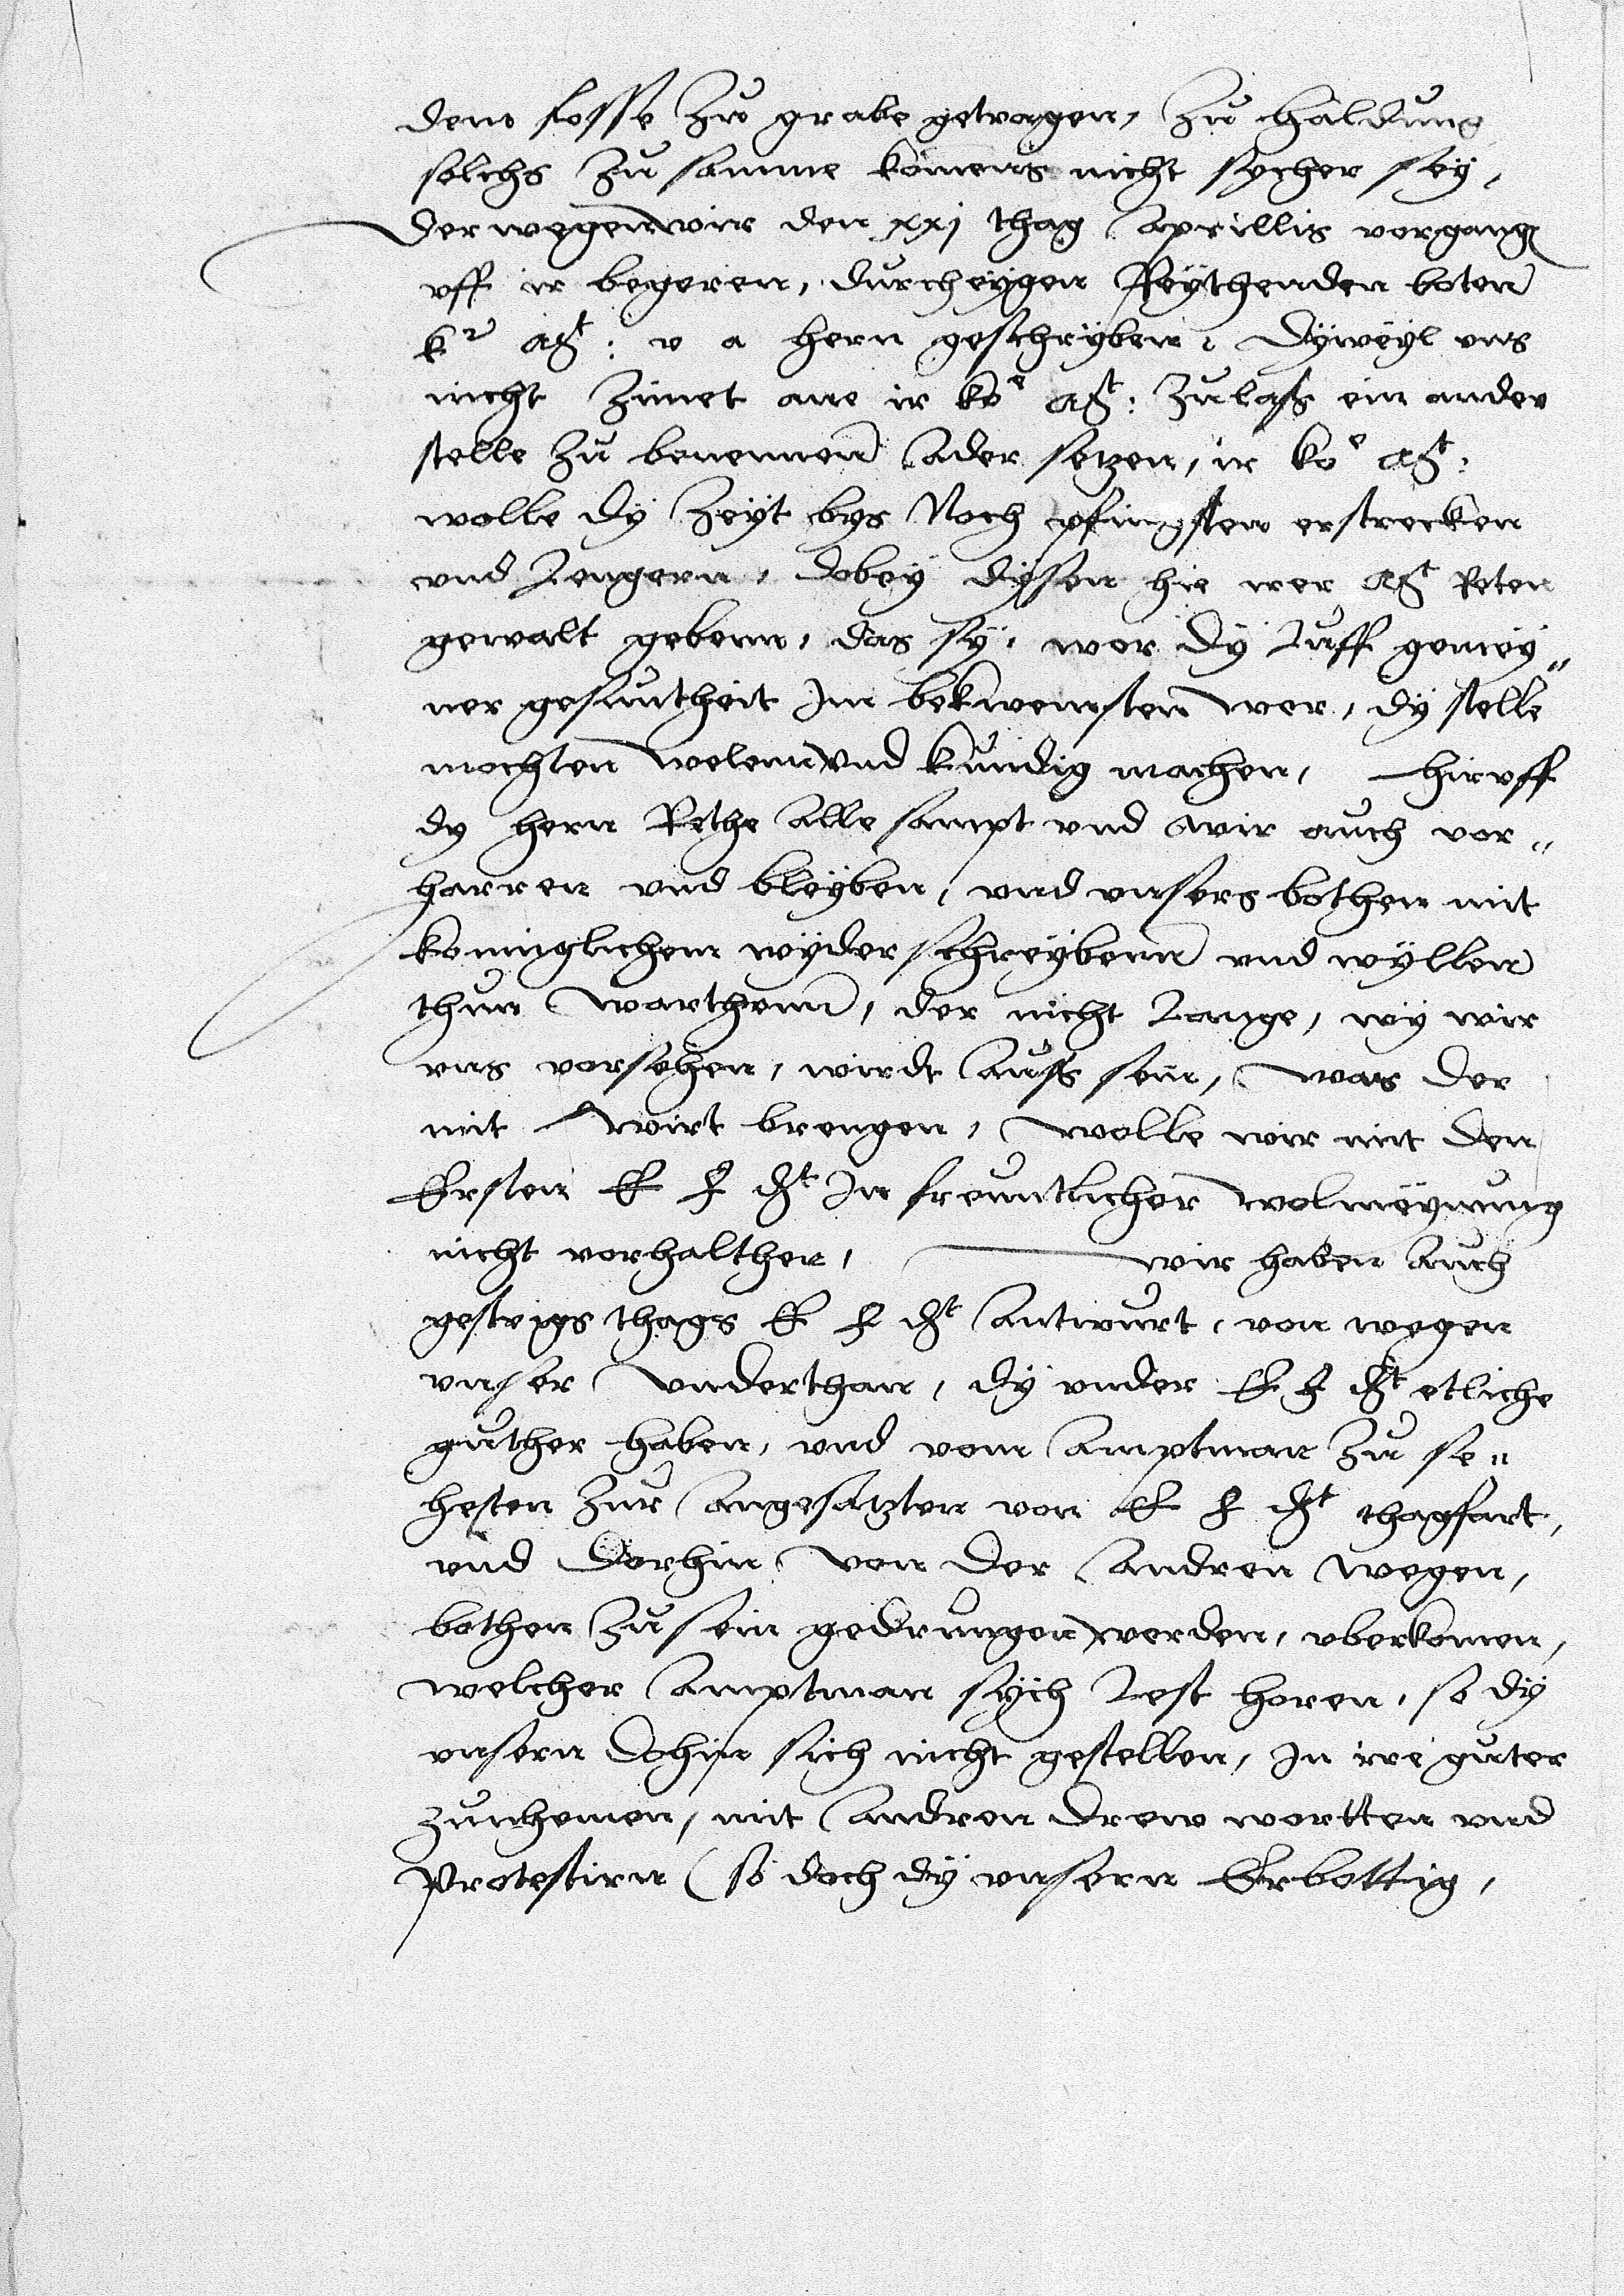 dem fosse zu grabe getragen, zu haldung
solchs zu samme komens nicht sycher sey,
derwegen wir den xxj thag Aprillis vorgang
vff ir begeren, durch eygen Reythenden boten
kr Mt: v a hern geschryben, dyweyl vns
nicht zimet ane ir ko Mt: zulaß ein ander
stelle zu benennen ader setzen, ir ko Mt:
wolle dy zeyt bys Noch pfingsten erstrecken
vnd lengern, dobey dysen hie irer Mt Reten
gewalt geben, das sy, wor dy luff gemey„
ner gesuntheit Im bekwemsten wer, dy stelle
mochten welenn vnd kundig machen, hirvff
dy hern Rethe alle sampt vnd wir auch vor„
harren vnd bleyben, vnd vnsers bothen mit
koninglichem wyder schreybenn vnd wyllen
thun warthenn, der nicht lange, wy wir
vns vorsehen, wirdt auß sein, was der
mit wirt brengen, wolle wir mit den
Ersten E f gt In freuntlicher wolmeynung
nicht vorhalthen, wir haben auch
gestrigs thags E f gt antwurt, von wegen
vnser vnderthan, dy vnder E f gt etliche
guther haben, vnd vom amptman zu se„
hesten zur angesatzten von E f gt thagfart,
vnd dorhin von der andren wegen,
bothen zu sein gedrungen werden, vberkomen,
welcher amptman sych lest horen, so dy
vnsern dohin sich nicht gestellen, In ire guter
zunhemen, mit andren drew wortten vnd
Protestirn (so doch dy vnsern Erbottig,